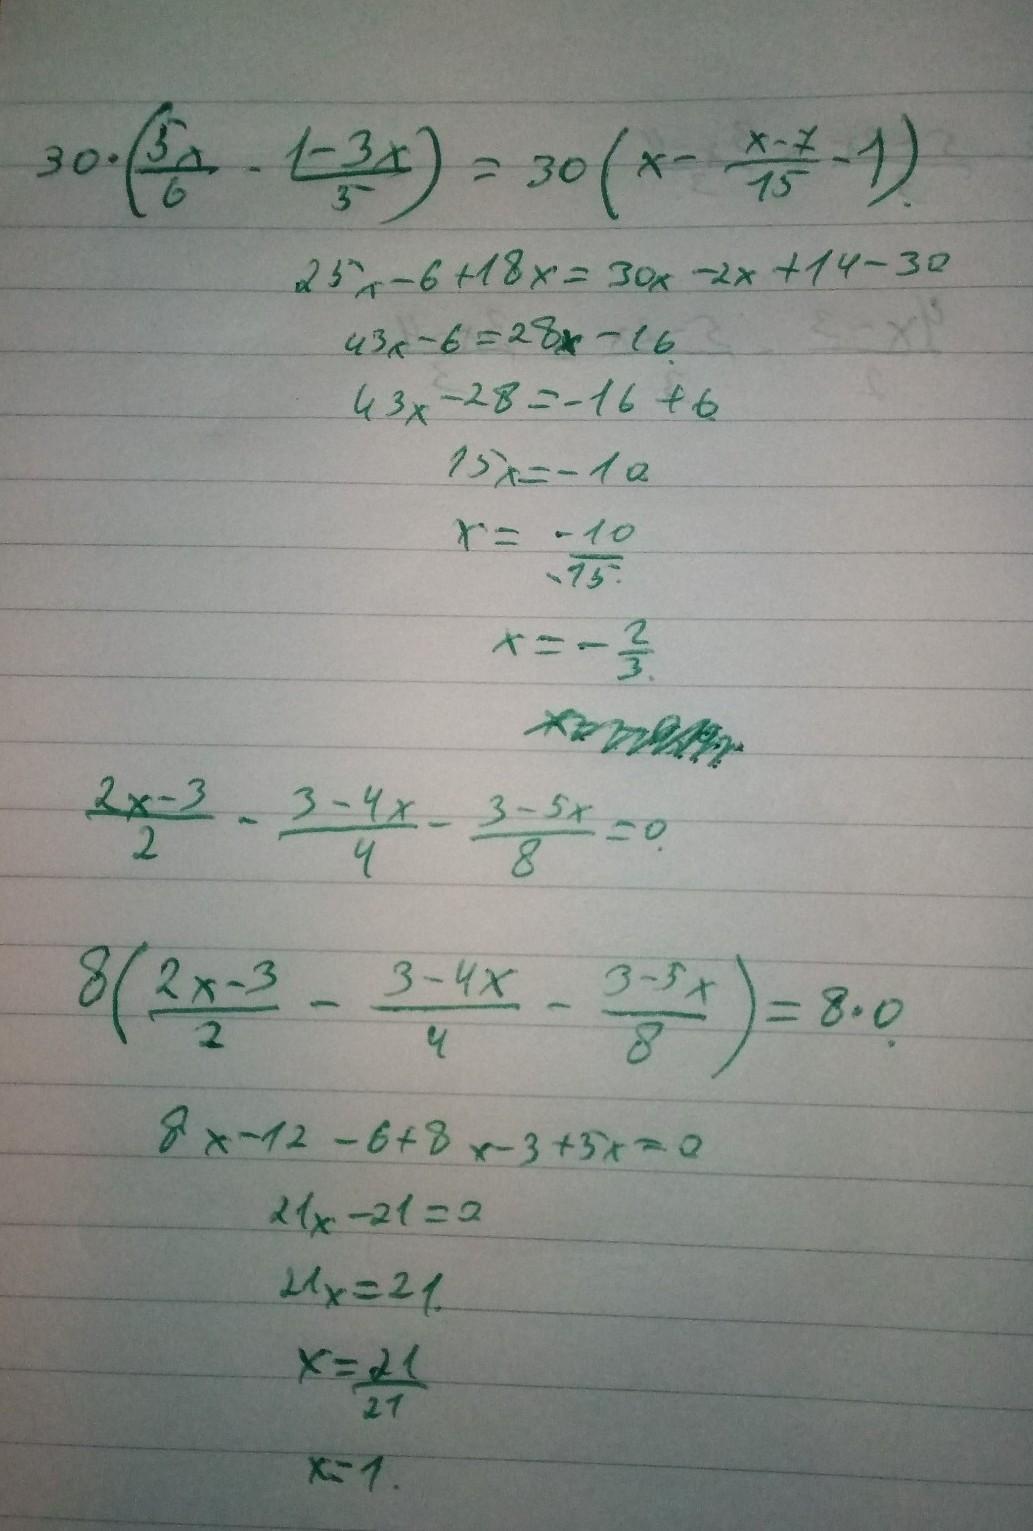 30·(5x/6 - (1-3x)/5) = 30(x - (x-7)/15 - 1).
25x-6+18x=30x-2x+14-30
43x-6=28x-16
43x-28=-16+6
15x=-10
x= -10/15.
x=-2/3.
(2x-3)/2 - (3-4x)/4 - (3-5x)/8 =0.
8((2x-3)/2 - (3-4x)/4 - (3-5x)/8) = 8·0.
8x-12-6+8x-3+5x=0
21x-21=0
21x=21.
x=21/21
x=1.